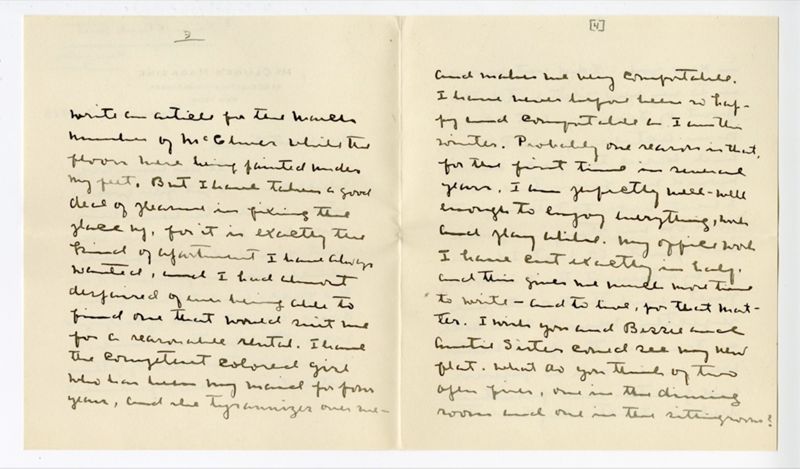 3
write an article for the March
number of McClures while the
floors were being painted under
my feet. But I have taken a good
deal of pleasure in fixing the
place up, for it is exactly the
kind of apartment I have always
wanted, and I had almost
despaired of ever being able to
find one that would suit me
for a reasonable rental. I have
the competent colored girl
who has been my maid for four
years, and she tyrannizes over me—
[4]
and makes me very comfortable.
I have never before been so hap-
py and comfortable as I am this
winter. Probably one reason is that,
for the first time in several
years, I am perfectly well - well
enough to enjoy everything, work
and play alike. My office work
I have cut exactly in half,
and this gives me much more time
to write - and to live, for that mat-
ter. I wish you and Bessie and
Auntie Sister could see my new
flat. What do you think of two
open fires, one in the dining
room and one in the sittingroom?